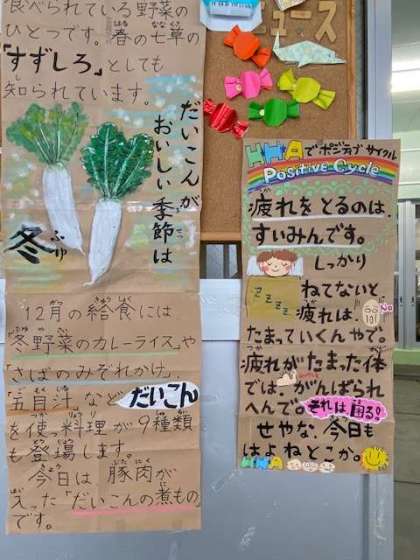 食べられている野菜の
ひとつです。春の七草の
「すずしろ」としても
知られています。
だいこんが
おいしい季節は
冬
12月の給食には
"冬野菜のカレーライス"や
"さばのみぞれかけ",
"五目汁"など だいこん
を使った料理が9種類
も登場します。
今日は豚肉が
入った"だいこんの煮もの"
です。
ニュース
HHAでポジティブサイクル
Positive Cycle
疲れをとるのは、
すいみんです。
しっかり
ねてないと
zzzz 疲れは
たまっていくんやで。
疲れがたまった体
では、がんばられ
へんで。それは困る!
せやな、今日も
はよねとこか。
HHA